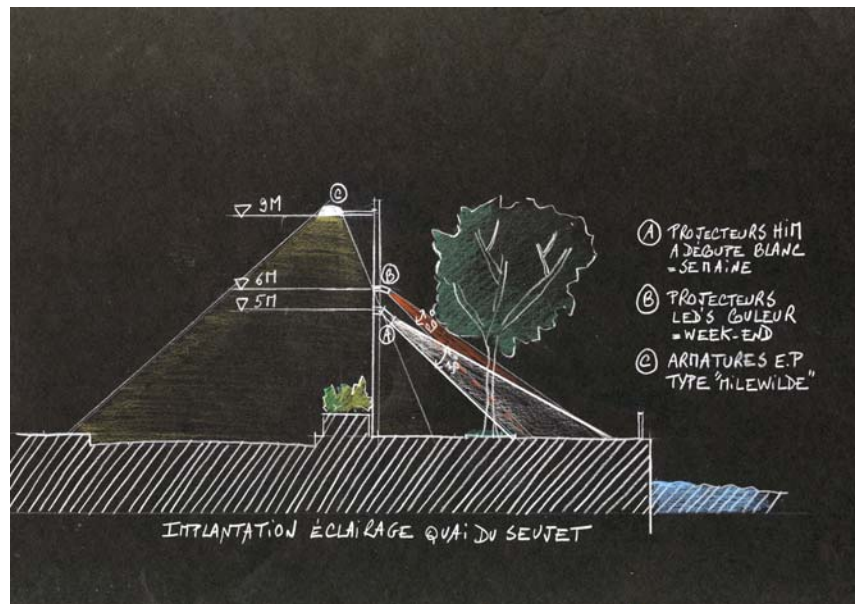 C
9M
6M
B
5M
A
A PROJECTEURS HIM
A DÉCOUPE BLANC
= SEMAINE
B PROJECTEURS
LED'S COULEUR
= WEEK-END
C ARMATURES E.P
TYPE "MILEWILDE"
IMPLANTATION ÉCLAIRAGE QUAI DU SEUJET